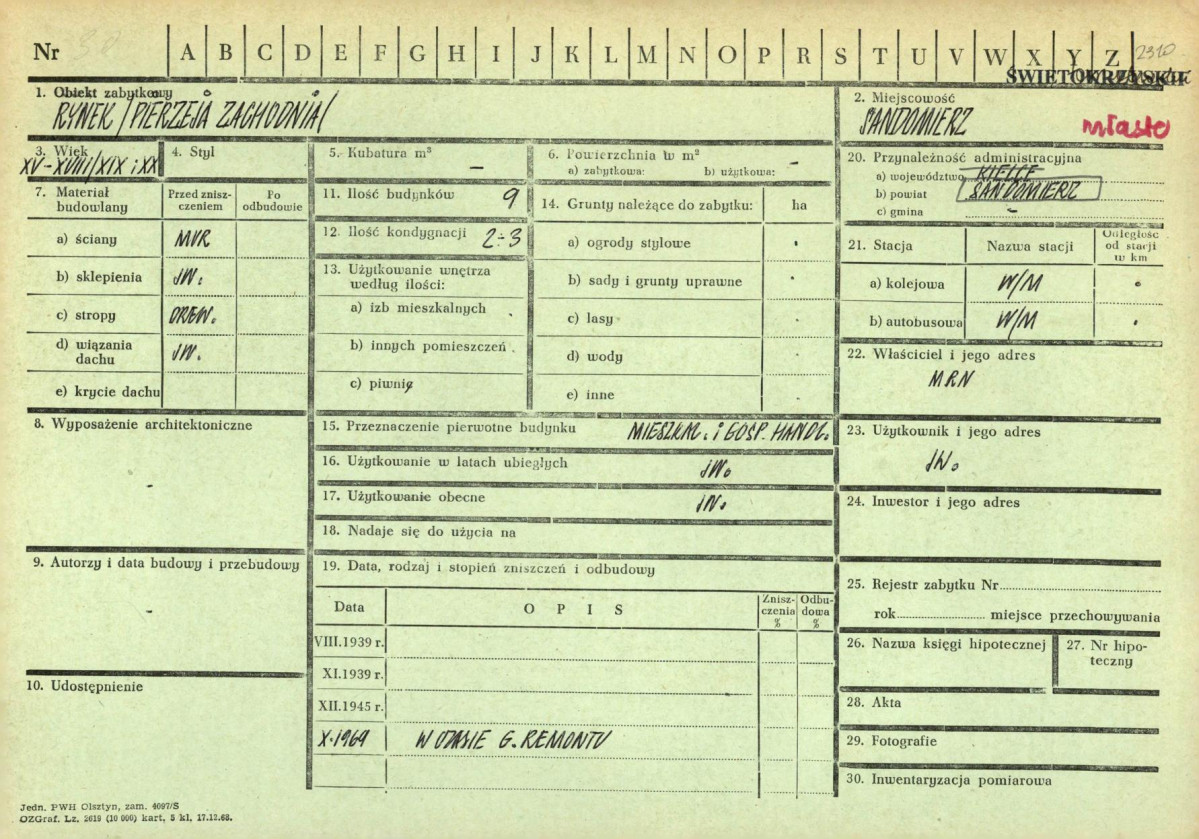 Nr A B C D E F G H I J K L M N O P R S T U V W X Y Z 2310
ŚWIĘTOKRZYSKIE
1. Obiekt zabytkowy
RYNEK /PIERZEJA ZACHODNIA/
2. Miejscowość
SANDOMIERZ miasto
3. Wiek
XV-XVIII/XIX i XX
4. Styl
5. Kubatura m³
-
6. Powierzchnia w m² -
a) zabytkowa: b) użytkowa:
20. Przynależność administracyjna
a) województwo KIELCE
b) powiat SANDOMIERZ
c) gmina -
7. Materiał budowlany
Przed zniszczeniem
Po odbudowie
a) ściany MUR
b) sklepienia JW.
c) stropy DREW.
d) wiązania dachu JW.
e) krycie dachu
11. Ilość budynków 9
12. Ilość kondygnacji 2÷3
13. Użytkowanie wnętrza
według ilości:
a) izb mieszkalnych .
b) innych pomieszczeń .
c) piwnic
14. Grunty należące do zabytku: ha
a) ogrody stylowe .
b) sady i grunty uprawne .
c) lasy .
d) wody .
e) inne .
21. Stacja Nazwa stacji Odległość od stacji w km
a) kolejowa W/M .
b) autobusowa W/M .
22. Właściciel i jego adres
MRN
8. Wyposażenie architektoniczne
-
15. Przeznaczenie pierwotne budynku MIESZKAL. i GOSP. HANDL.
16. Użytkowanie w latach ubiegłych JW.
17. Użytkowanie obecne JW.
18. Nadaje się do użycia na
23. Użytkownik i jego adres
JW.
24. Inwestor i jego adres
9. Autorzy i data budowy i przebudowy
-
10. Udostępnienie
19. Data, rodzaj i stopień zniszczeń i odbudowy
Data OPIS Zniszczenia % Odbudowa %
VIII.1939 r.
XI.1939 r.
XII.1945 r.
X.1969 W CZASIE G. REMONTU
25. Rejestr zabytku Nr
rok miejsce przechowywania
26. Nazwa księgi hipotecznej
27. Nr hipoteczny
28. Akta
29. Fotografie
30. Inwentaryzacja pomiarowa
Jedn. PWH Olsztyn, zam. 4097/S
OZGraf. Lz. 2619 (10 000) kart, 5 kl, 17.12.68.